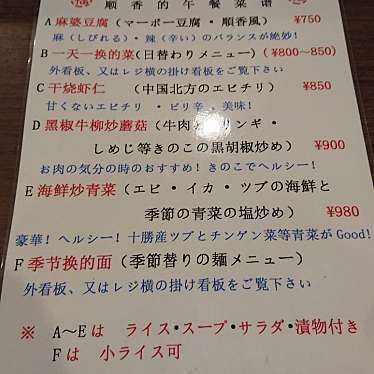 順香的午餐菜谱
A 麻婆豆腐（マーボー豆腐・順香風） ¥750
麻（しびれる）・辣（辛い）のバランスが絶妙！
B 一天一换的菜（日替わりメニュー）（¥800～850）
外看板、又はレジ横の掛け看板をご覧下さい
C 干烧虾仁 （中国北方のエビチリ） ¥850
甘くないエビチリ ・ ピリ辛・美味！
D 黑椒牛柳炒蘑菇（牛肉と リンギ・
しめじ等きのこの黒胡椒炒め） ¥900
お肉の気分の時のおすすめ！きのこでヘルシー！
E 海鮮炒青菜（エビ・イカ・ツブの海鮮と
季節の青菜の塩炒め） ¥980
豪華！ヘルシー！十勝産ツブとチンゲン菜等青菜が Good!
F 季节换的面（季節替りの麺メニュー）
外看板、又はレジ横の掛け看板をご覧下さい
※ A～Eは ライス・スープ・サラダ・漬物付き
Fは 小ライス可